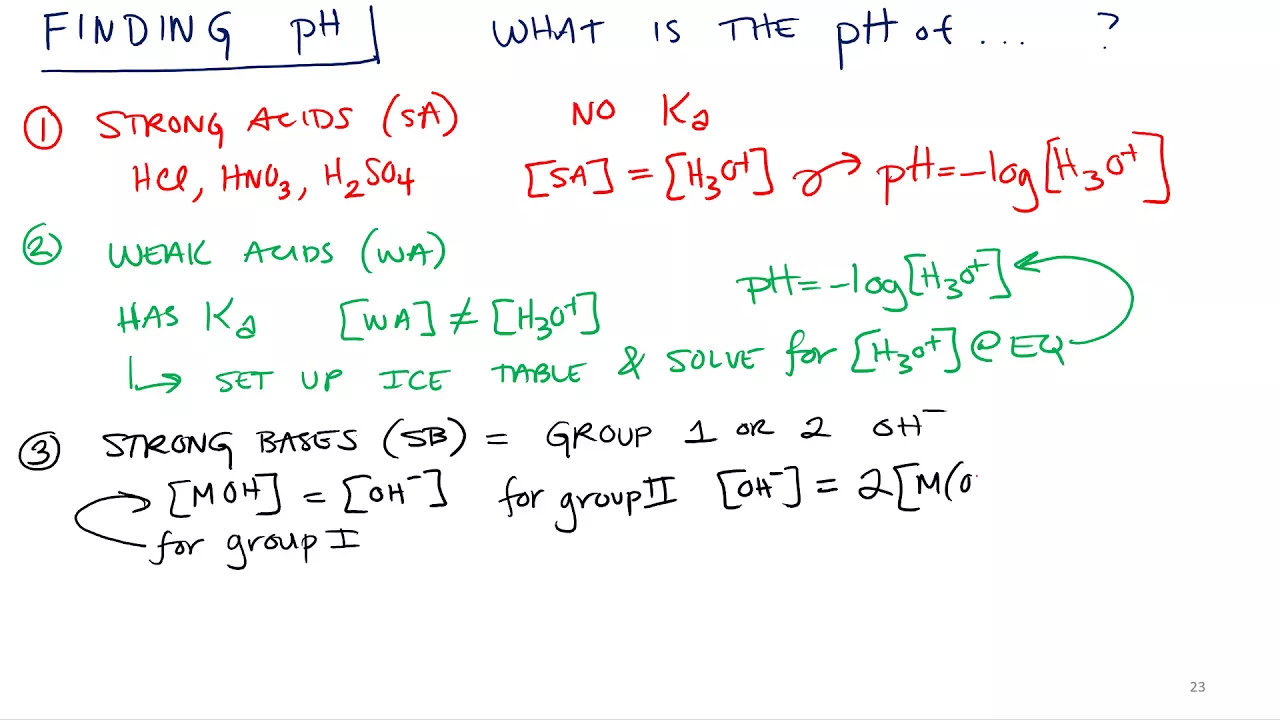 FINDING pH WHAT IS THE pH of ... ?
① STRONG ACIDS (SA) NO Ka
HCl, HNO₃, H₂SO₄ [SA] = [H₃O⁺] → pH = -log[H₃O⁺]
② WEAK ACIDS (WA)
pH = -log[H₃O⁺]
HAS Ka [WA] ≠ [H₃O⁺]
↳ SET UP ICE TABLE & SOLVE for [H₃O⁺] @ EQ
③ STRONG BASES (SB) = GROUP 1 OR 2 OH⁻
[MOH] = [OH⁻] for group II [OH⁻] = 2[M(O
for group I
23